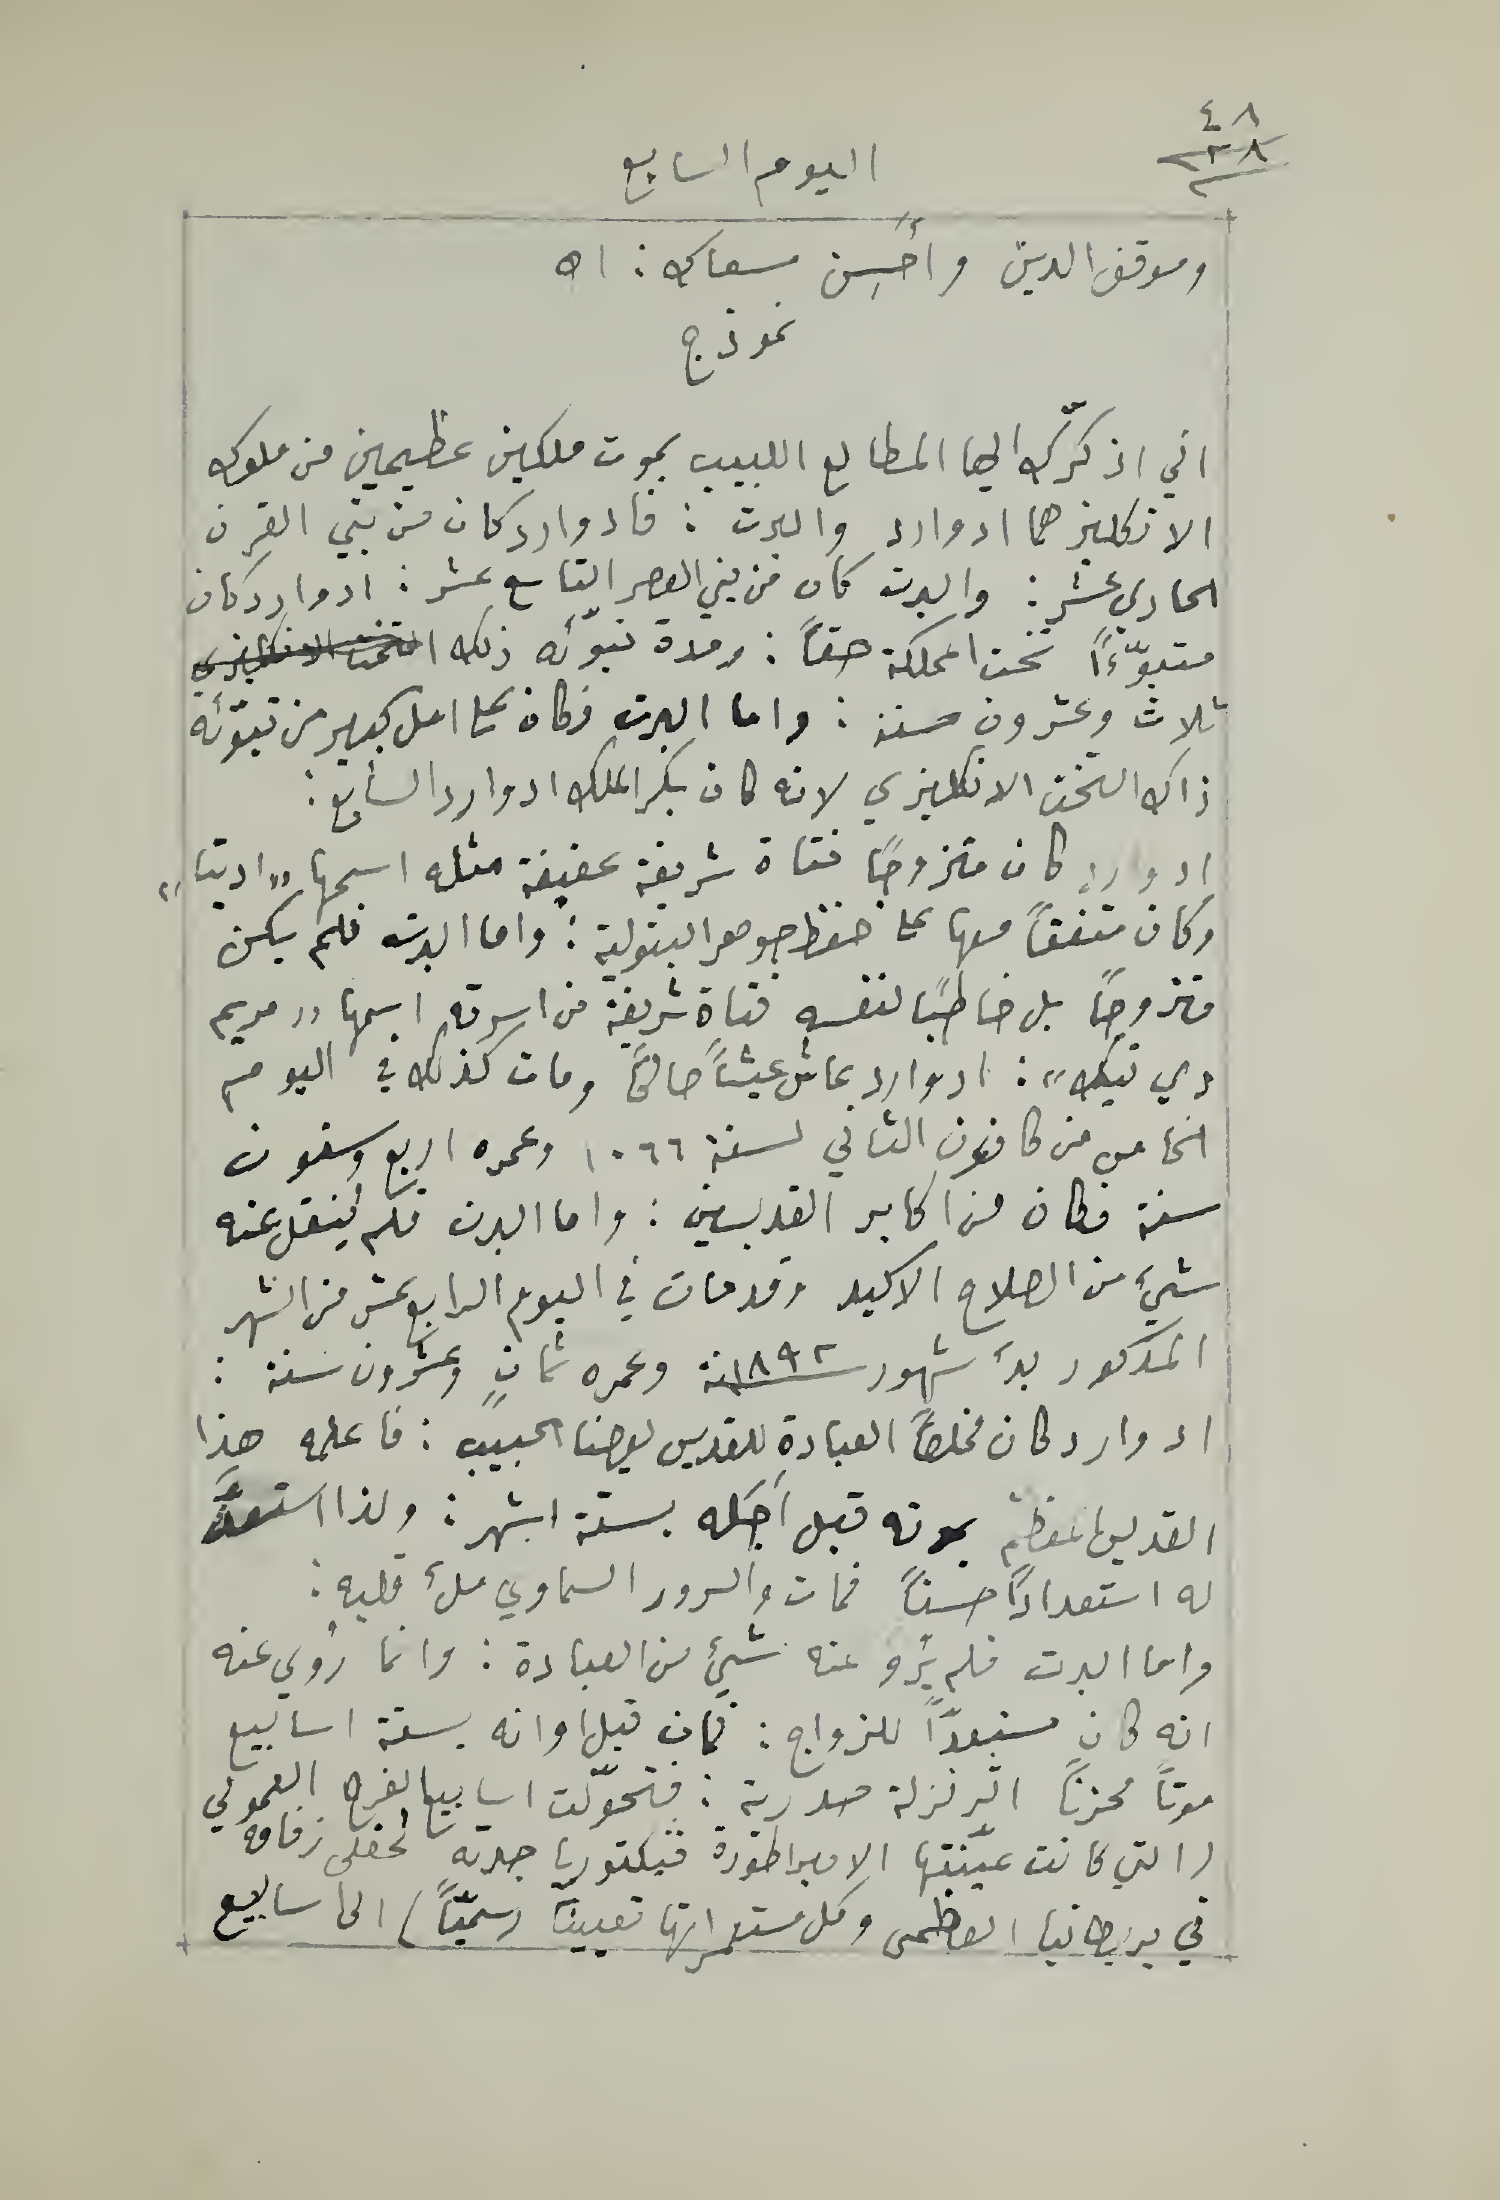 ٤٨
٣٨
اليوم السابع
وموقف الدين وأحسِن مسعاك : اه
نموذج
اني اذكرّك ايها المطالع اللبيب بموت ملكين عظيمين من ملوك
الانكليز هما ادوارد والبرت : فادوارد كان من بني القرن
الحادي عشر : والبرت كان من بني العصر التاسع عشر : ادوارد كان
متبوّءًا تخت المملكة حقاً : ومدة تبوّئه ذلك التخت الانكليزي
ثلاث وعشرون سنة : واما البرت فكان على امل كبير من تبوّئه
ذاك التخت الانكليزي لانه كان بكر الملك ادوارد السابع :
ادوارد كان متزوجًا فتاة شريفة عفيفة مثله اسمها „اديتا“
وكان متفقاً معها على حفظ جوهر البتولية : واما البرت فلم يكن
متزوجًا بل خاطبًا لنفسه فتاة شريفة من اسرته اسمها „مريم
دي تيك“ : ادوارد عاش عيشاً صالحًا ومات كذلك في اليوم
الخامس من كانون الثاني لسنة ١٠٦٦ وعمره اربع وستون
سنة فكان من اكابر القديسين : واما البرت فلم يُنقل عنه
شيءٌ من الصلاح الاكيد وقد مات في اليوم الرابع عشر من الشهر
المذكور بدء شهور سنة ١٨٩٢ وعمره ثمانٍ وعشرون سنة :
ادوارد كان مخلصاً العبادة للقديس يوحنا الحبيب : فاعلمه هذا
القديس المعظم بموته قبل أجَله بستة اشهر : ولذا استعدَّ
له استعداداً حسناً فمات والسرور السماوي ملءُ قلبه :
واما البرت فلم يُروَ عنه شيءٌ من العبادة : وانما رُوي عنه
انه كان مستعدّاً للزواج : فمات قبل اوانه بستة اسابيع
موتاً محزناً اثر نزلة صدرية : فتحوّلت اسابيع الفرح العمومي
(التي كانت عيّنتها الامبراطورة فيكتوريا جدته لحفلى زفافه
في بريطانيا العظمى وكل مستعمراتها تعييناً رسميّاً) الى اسابيع